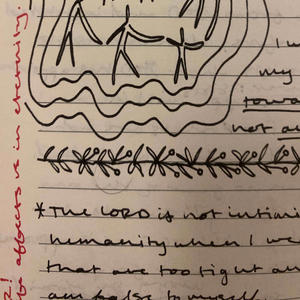 I w
my
towa
not a
*The LORD is not intimi
humanity when I we
that are too tight an
am false to myself
affects us in eternity.